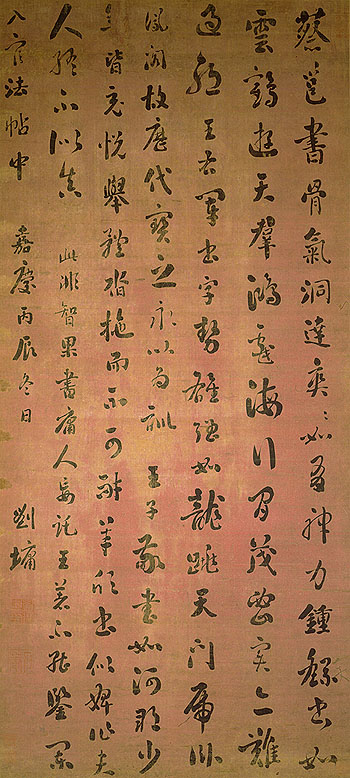 蔡邕書骨氣洞達爽〻如有神力鍾繇書如
雲鶴遊天羣鴻戲海行間茂密實亦難
過耶王右軍書字勢雄强如龍跳天門虎卧
鳳閣故歷代寶之永以為訓 王子敬書如河朔少
年皆充悦舉體沓拖而不可耐羊欣書似婢作夫
人終不似真 此非智果書庸人妄託王著不能鑒
入官法帖中 嘉慶丙辰冬日 劉墉